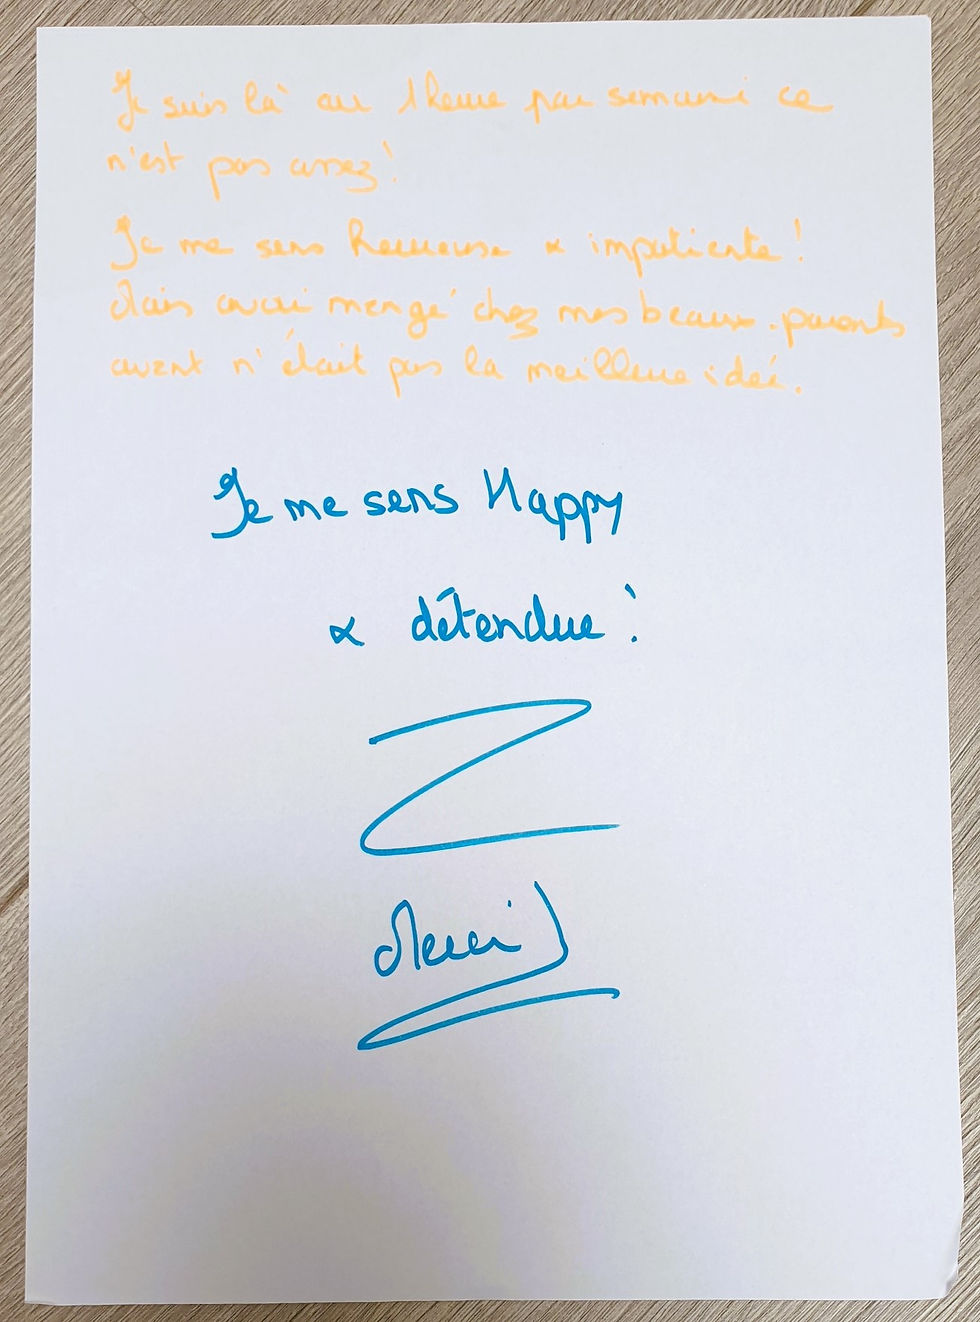 Je suis là au 1 heure par semaine ce
n'est pas assez!
Je me sens heureuse & impatiente!
Mais avoir mangé chez mes beaux-parents
avant n'était pas la meilleure idée.
Je me sens Happy
& détendue!
Merci